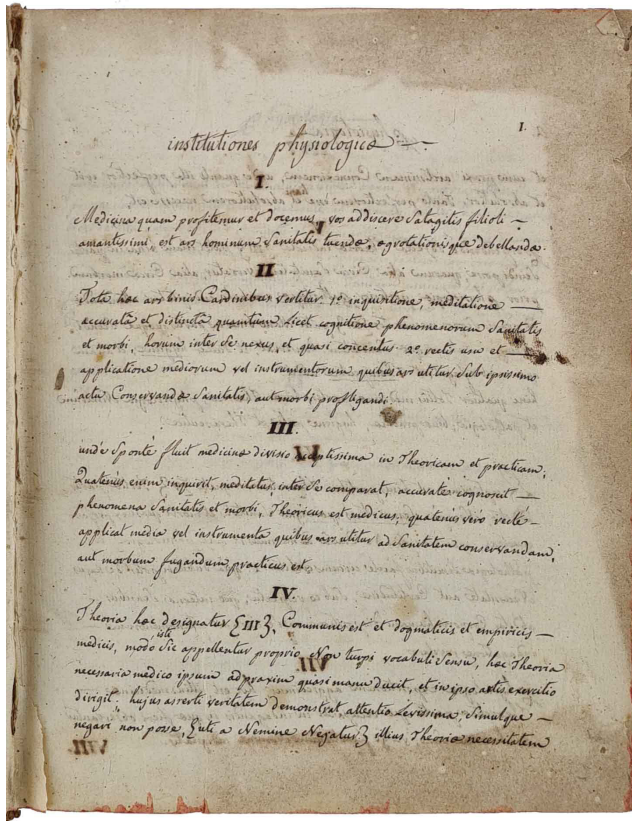 1.
institutiones physiologicæ
I.
Medicina quam profitemur et docemus, vos addiscere Satagitis filioli
amantissimi, est ars hominum Sanitatis tuendæ, ægrotationisque debellandæ.
II
Tota hæc ars binis Cardinibus vertitur. 1º inquisitione, meditatione
accuratâ et distinctâ quantum Licet cognitione phenomenorum Sanitatis
et morbi, horum inter Se nexus, et quasi concentus 2º rectes usu et
applicatione mediorum vel instrumentorum quibus ars utitur Sub ipsissimo
actu Conservandæ Sanitatis, aut morbi profligandi.
III.
undè Sponte fluit medicinæ divisio aptissima in Theoricam et practicam.
Quatenus enim inquirit, meditatur, inter Se comparat, accurate cognoscit
phenomena Sanitatis et morbi, Theoricus est medicus, quatenus vero rectè
applicat media vel instrumenta quibus ars utitur ad Sanitatem conservandam,
aut morbum fugandum, practicus est
IV.
Theoria hæc designatur {III}, Communis est et dogmaticis et empiricis
medicis, modo isti Sic appellentur proprio Non turpi vocabuli Sensu, hæc Theoria
necessaria medico ipsum ad praxim quasi manu ducit, et in ipso artis exercitio
dirigit, hujus asserti veritatem demonstrat attentio Levissima, Simulque
negari non posse, {uti a Nemine Negatur} illius Theoriæ necessitatem